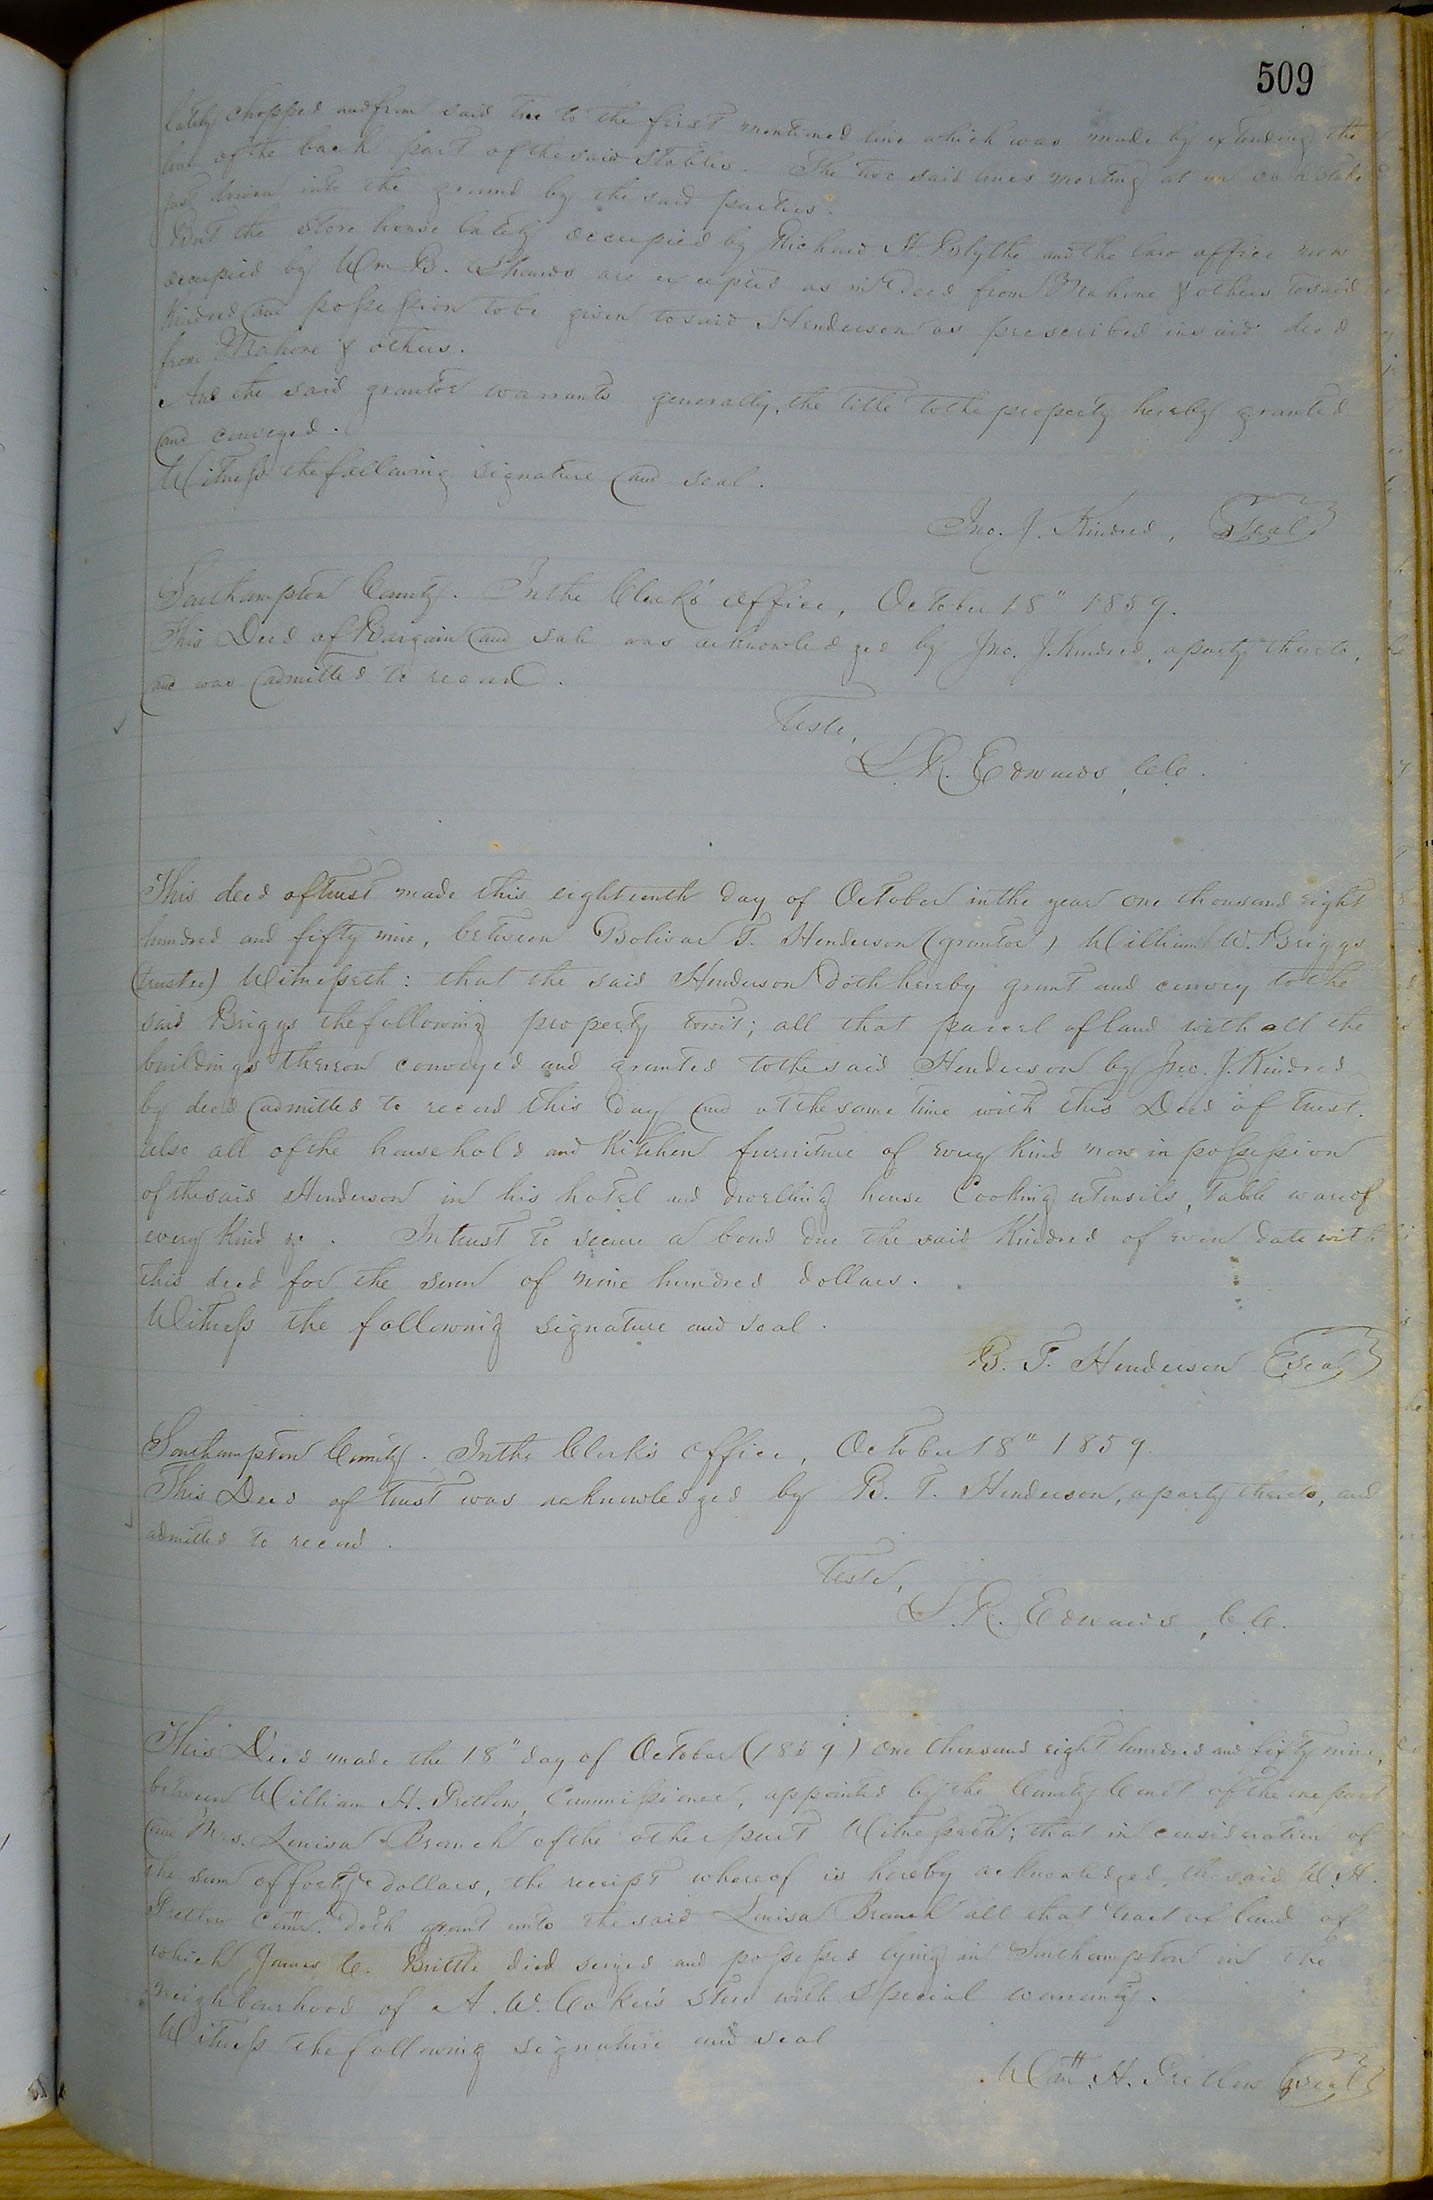 509
lately chopped and from said tree to the first mentioned line which was made by extending the
line of the back part of the said stables. The two said lines meeting at an oak stake
just driven into the ground by the said parties.
But the store house lately occupied by Richard H. Blythe and the law office now
occupied by Wm B. Shands are excepted as in deed from Mahone & others to said
Kindred and possession to be given to said Henderson as prescribed in said deed
from Mahone & others.
And the said grantor warrants generally, the title to the property hereby granted
and conveyed.
Witness the following signature and seal.
Jno. J. Kindred, Seal
Southampton County. In the Clerk's office, October 18" 1859.
This Deed of Bargain and sale was acknowledged by Jno. J. Kindred, a party thereto,
and was admitted to record.
Teste,
L. R. Edwards, C.C.
This deed of trust made this eighteenth day of October in the year one thousand eight
hundred and fifty nine, between Bolivar T. Henderson (grantor) William W. Briggs
(trustee) Witnesseth: that the said Henderson doth hereby grant and convey to the
said Briggs the following property towit; all that parcel of land with all the
buildings thereon conveyed and granted to the said Henderson by Jno. J. Kindred
by deed admitted to record this day and at the same time with this Deed of trust.
also all of the household and Kitchen furniture of every kind now in possession
of the said Henderson in his hotel and dwelling house Cooking utensils, Table ware of
every kind &c. In trust to secure a bond due the said Kindred of even date with
this deed for the sum of nine hundred dollars.
Witness the following signature and seal.
B. T. Henderson Seal
Southampton County. In the Clerk's office, October 18" 1859.
This Deed of trust was acknowledged by B. T. Henderson, a party thereto, and
admitted to record.
Teste,
L. R. Edwards, C.C.
This Deed made the 18" day of October (1859) one thousand eight hundred and fifty nine,
between William H. Pretlow, Commissioner, appointed by the County Court of the one part
and Mrs. Louisa Branch of the other part Witnesseth; that in consideration of
the sum of forty dollars, the receipt whereof is hereby acknowledged, the said W. H.
Pretlow Comr. doth grant unto the said Louisa Branch all that tract of land of
which James C. Brittle died seized and possessed lying in Southampton in the
neighbourhood of A. W. Coker's store with special warranty.
Witness the following signature and seal
Wm. H. Pretlow Seal